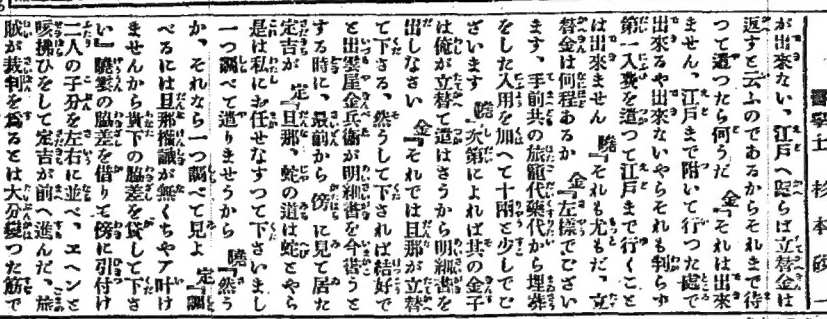 醫學士 杉本
が出來ない、江戸へ歸らば立替金は
返すと云ふのであるからそれまで待
つて遣つたら何うだ 金『それは出來
ません、江戸まで附いて行つた處で
出來るや出來ないやらそれも判らず
第一入費を遣つて江戸まで行くこと
は出來ません 曉『それも尤もだ、立
替金は何程あるか 金『左樣でござい
ます、手前共の旅籠代藥代から埋葬
をした入用を加へて十兩と少しでご
ざいます 曉『次第によれば其の金子
は俺が立替て遣はさうから明細書を
出しなさい 金『それでは旦那が立替
て下さる、然うして下されば結好で
と出雲屋金兵衛が明細書を今書うと
する時に、最前から傍に見て居た
定吉が 定『旦那、蛇の道は蛇とやら
是は私にお任せなすつて下さいまし
一つ調べて遣りませうから 曉『然う
か、それなら一つ調べて見よ 定『調
べるには旦那權識が無くちやア叶け
ませんから貴下の脇差を貸して下さ
い』曉雲の脇差を借りて傍に引付け
二人の子分を左右に並べ、エヘンと
咳拂ひをして定吉が前へ進んだ、旅
賊が裁判を爲るとは大分變つた筋で